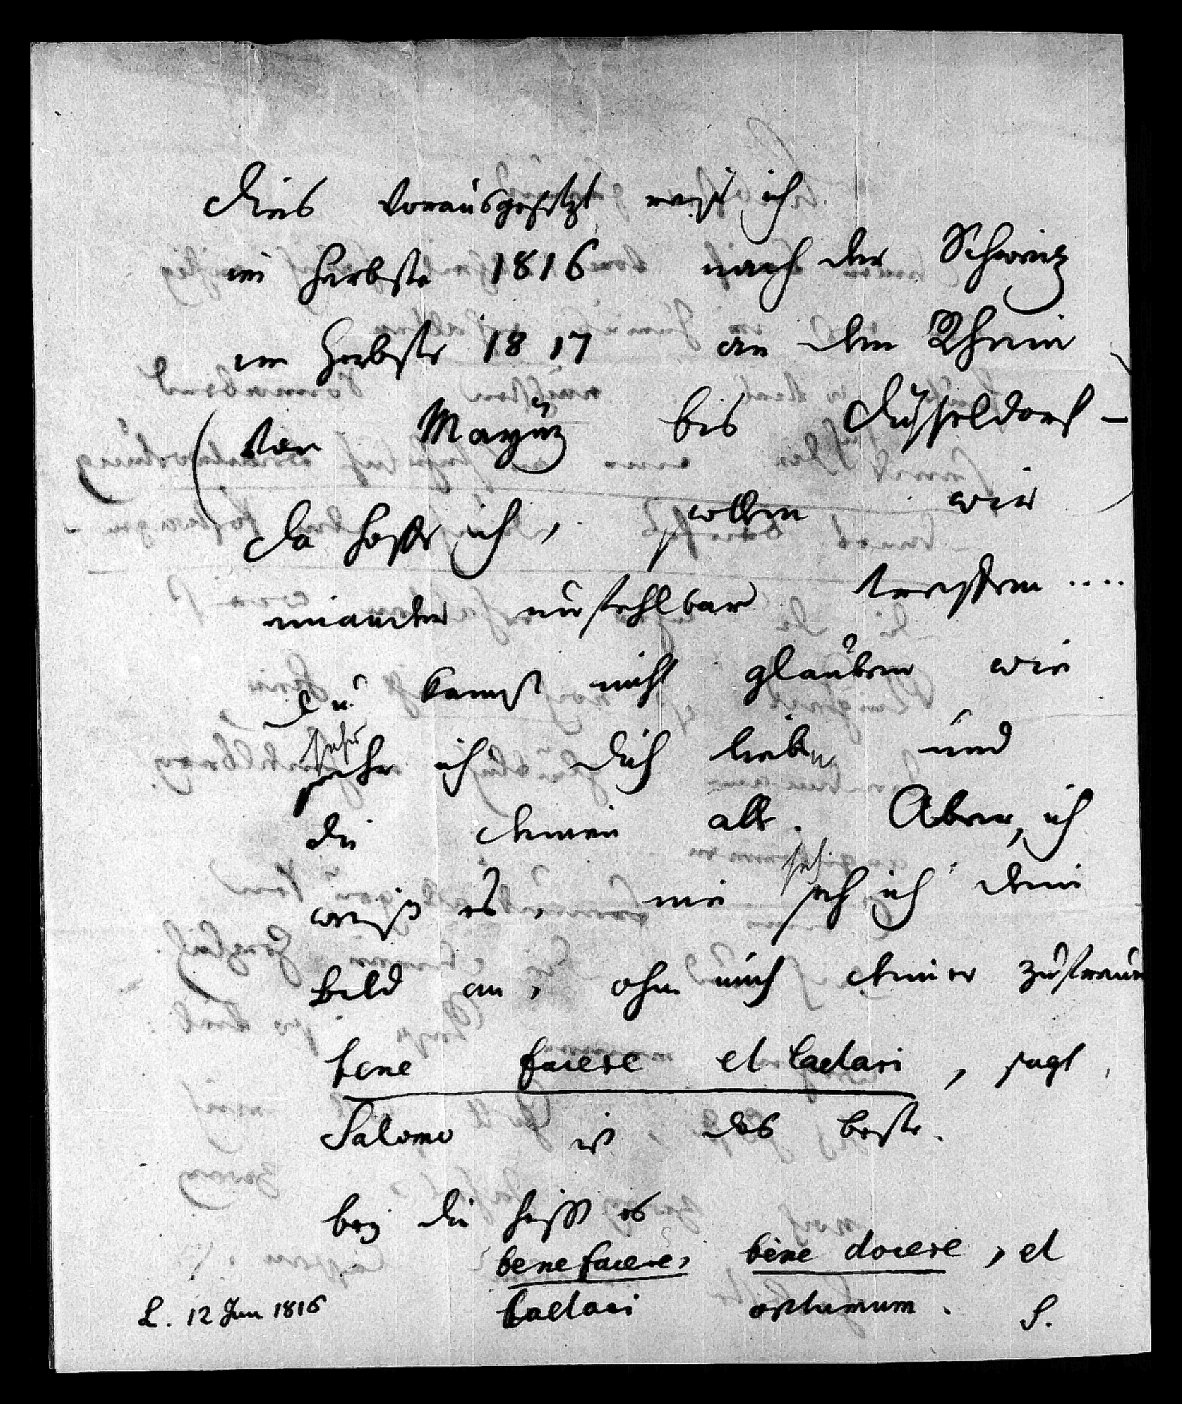 dies vorausgesetzt reise ich
im Herbste 1816 nach der Schweiz
im Herbste 1817 an den Rhein
(von Maynz bis Düsseldorf –)
da hoffe ich, sollen wir
einander unfehlbar treffen ....
Du kannst nicht glauben wie
sehr
sehr ich dich liebe und
die deinen alle. Aber, ich
weiß es, nie seh
seh ich dein
bild an, ohne mich deiner zu freuen
bene facere et laetari, sagt
Salomo ist das beste.
bey dir heißt es
bene facere, bene docere, et
laetari optimum. S.
L. 12 Jun 1816